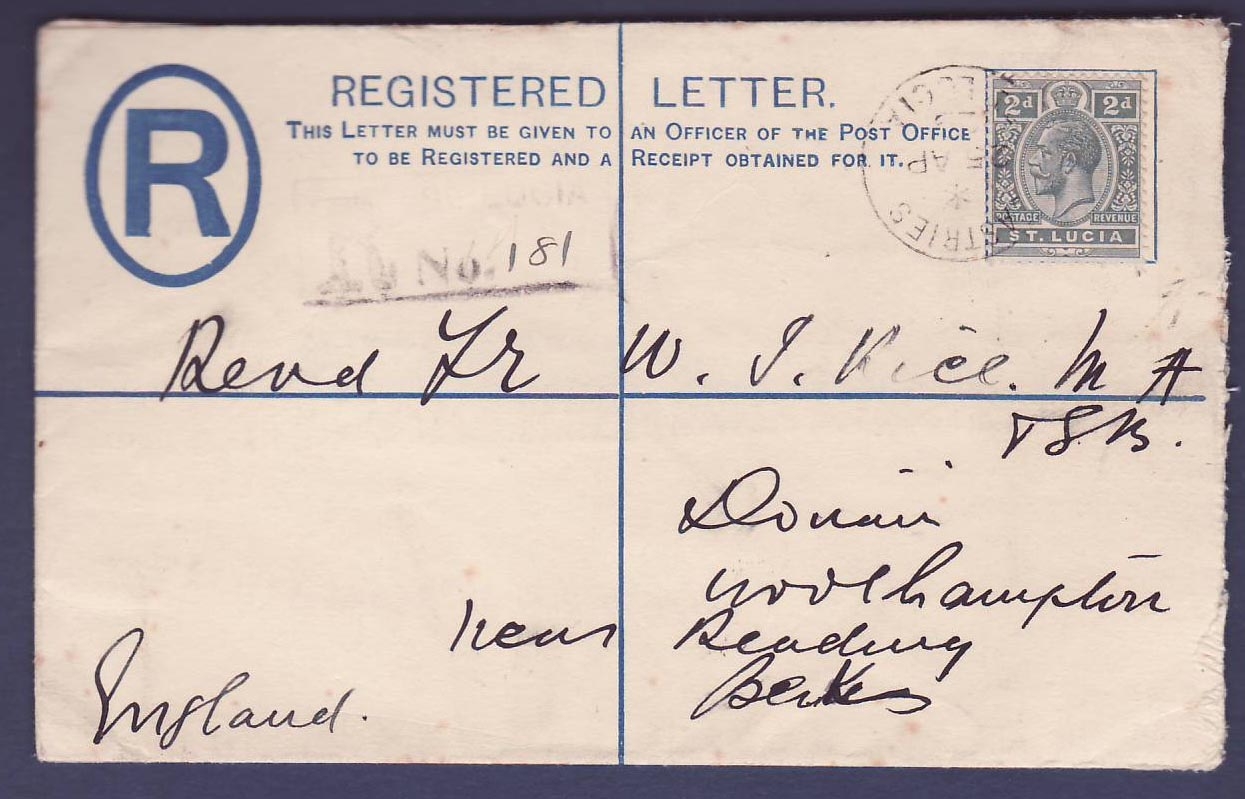 R
REGISTERED LETTER.
THIS LETTER MUST BE GIVEN TO AN OFFICER OF THE POST OFFICE
TO BE REGISTERED AND A RECEIPT OBTAINED FOR IT.
2d 2d
POSTAGE REVENUE
ST. LUCIA
No. 181
Revd Fr W. I. Rice. M A
OSB.
Douai
Woolhampton
near Reading
Berks
England.